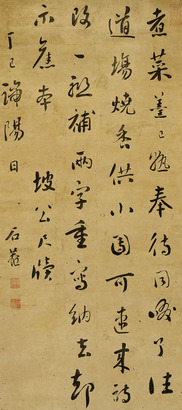 煮菜羹已熟奉待同啜了往
道場燒香供小團可速來詩
改一聯補兩字重寫納去却
示舊本 坡公尺牘
丁巳端陽日 石菴